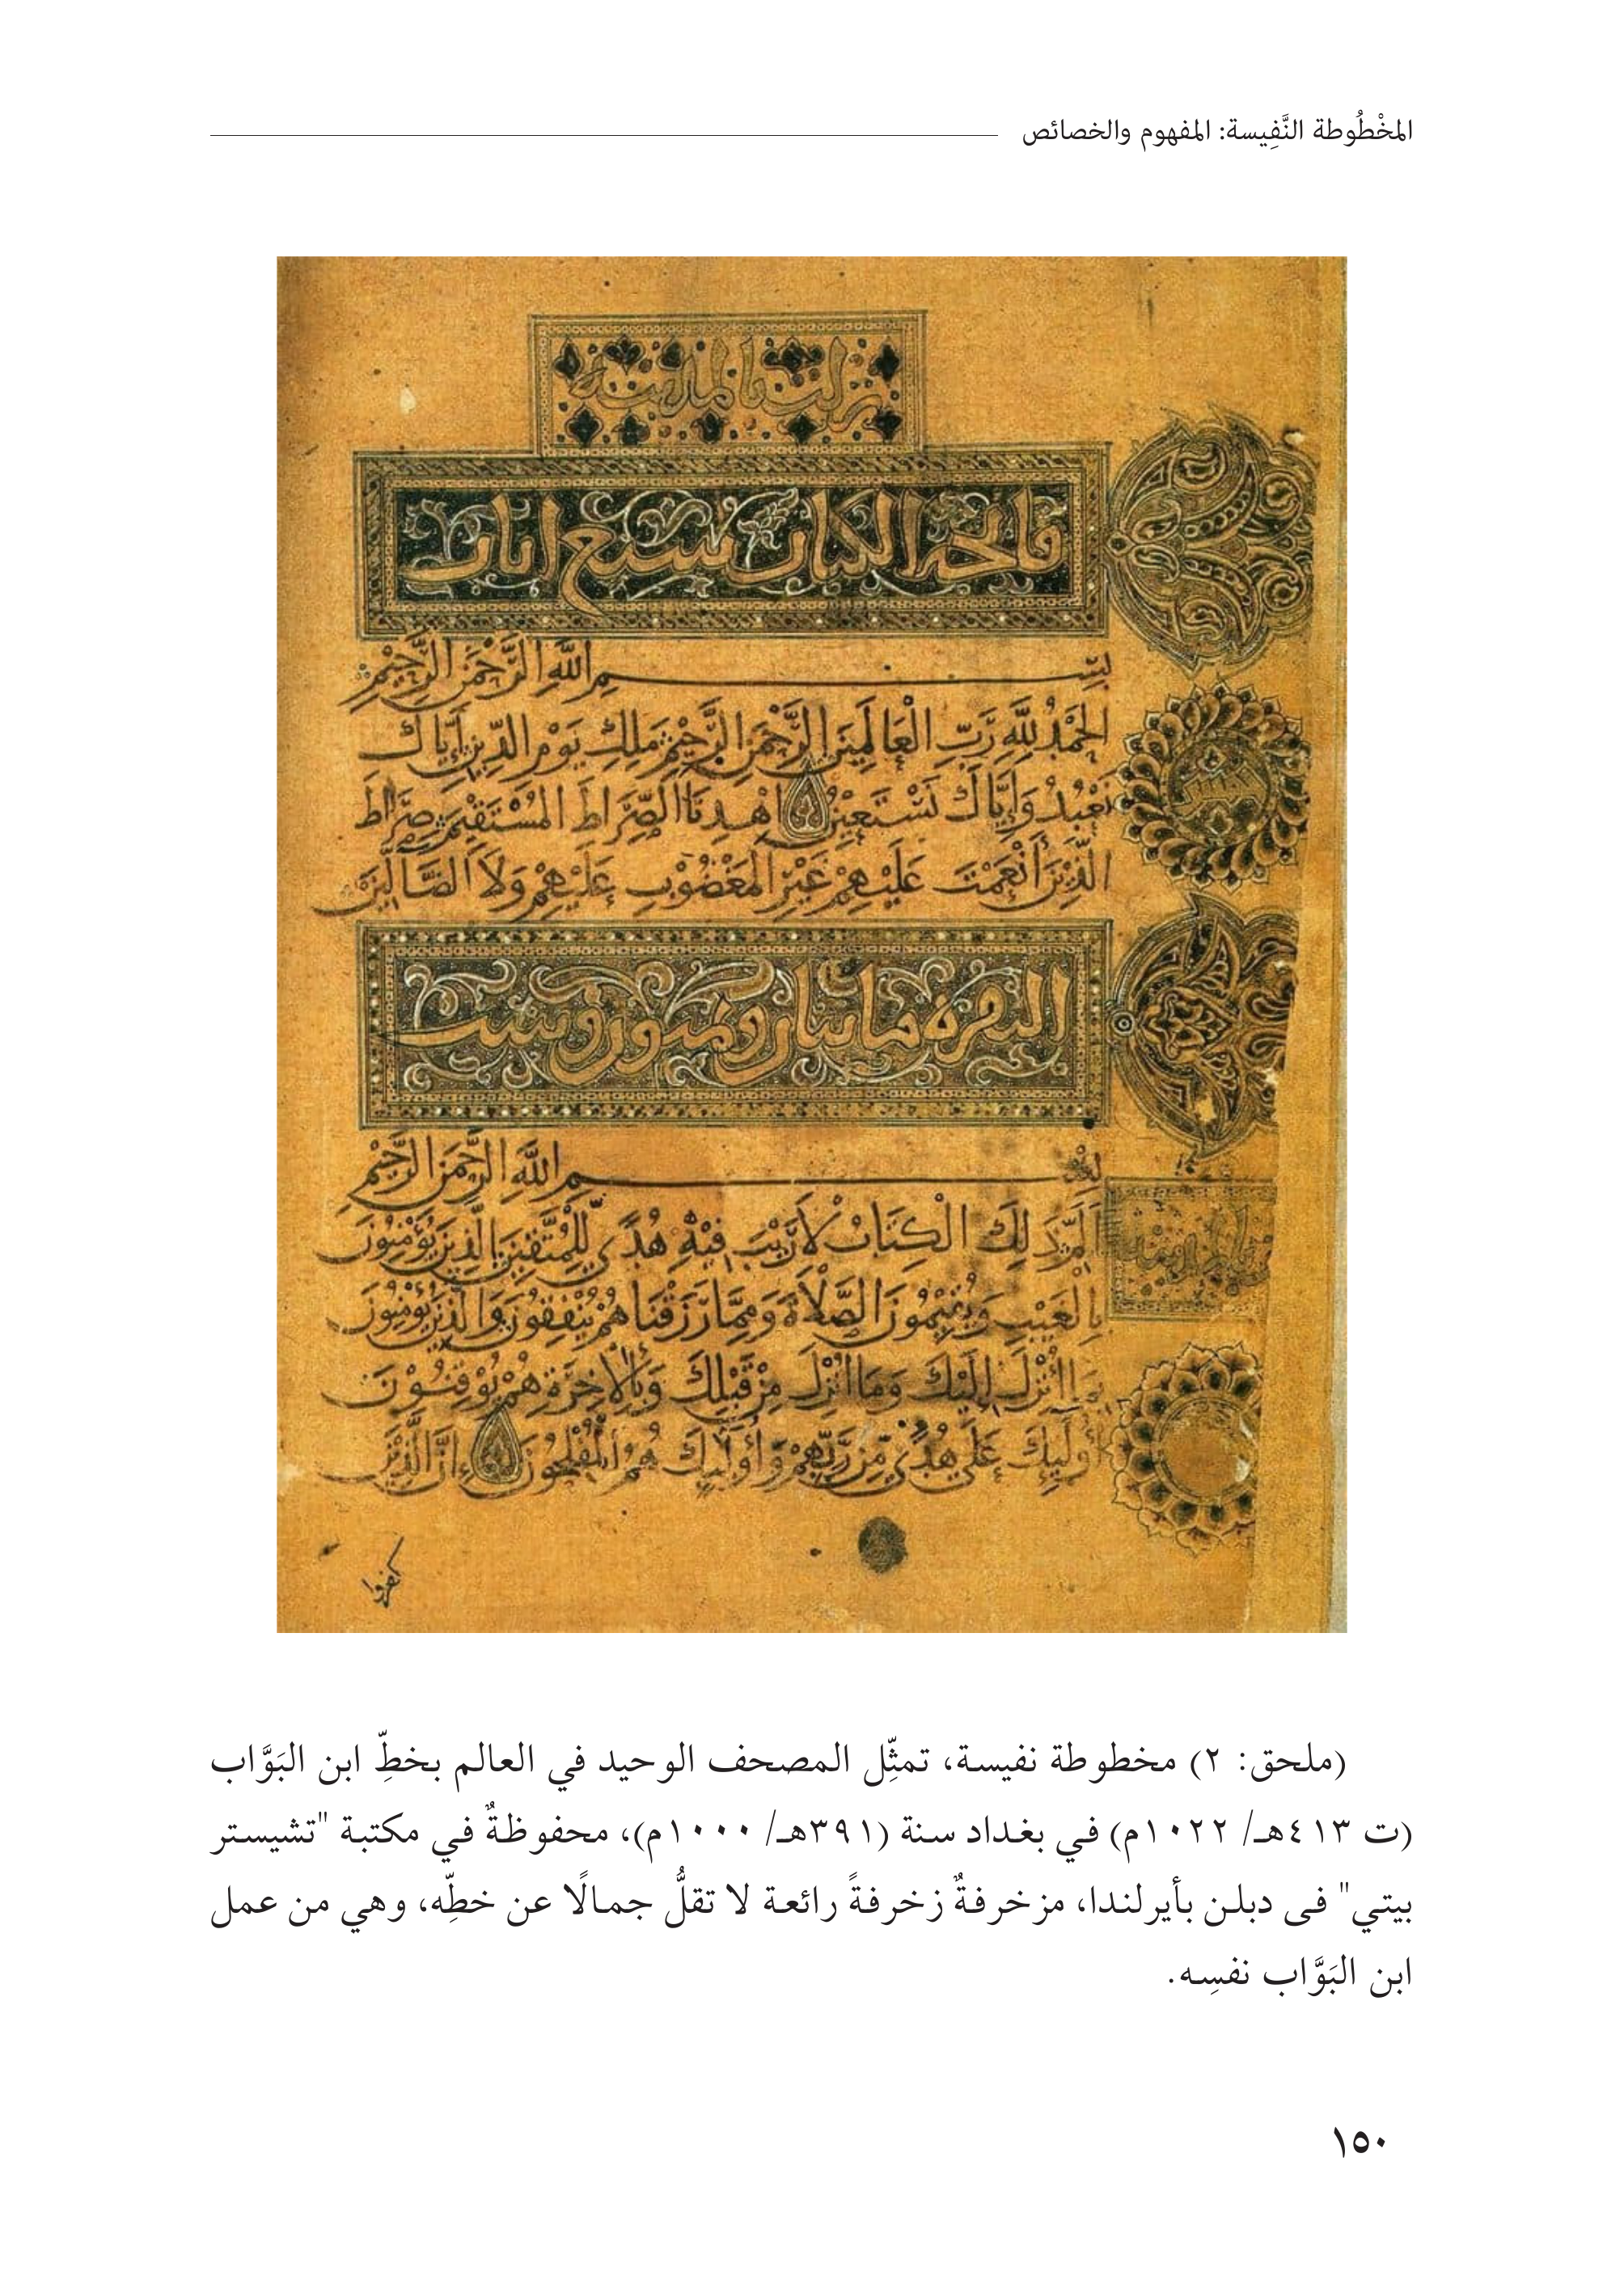 المخْطُوطة النَّفِيسة: المفهوم والخصائص
نزلت بالمدينة
فاتحة الكتاب سبع ايات
بسم الله الرَّحْمَنِ الرَّحِيمِ
الحَمْدُ لِلَّهِ رَبِّ الْعَالَمِينَ الرَّحْمَنِ الرَّحِيْمِ مَلِكِ يَوْمِ الدِّينِ إِيَّاكَ
نَعْبُدُ وَإِيَّاكَ نَسْتَعِيْنُ اهْدِنَا الصِّرَاطَ المُسْتَقِيْمَ صِرَاطَ
الَّذِيْنَ أَنْعَمْتَ عَلَيْهِمْ غَيْرِ المَغْضُوْبِ عَلَيْهِمْ وَلاَ الضَّآلِّيْنَ
البقره مايتان وثمنون وست
بسم اللَّهِ الرَّحْمَنِ الرَّحِيْمِ
الَمّ ذَلِكَ الْكِتَابُ لاَ رَيْبَ فِيْهِ هُدًى لِّلْمُتَّقِيْنَ الَّذِيْنَ يُؤْمِنُوْنَ
بِالْغَيْبِ وَيُقِيْمُوْنَ الصَّلاَةَ وَمِمَّا رَزَقْنَاهُمْ يُنْفِقُوْنَ وَالَّذِيْنَ يُؤْمِنُوْنَ
بِمَا أُنْزِلَ إِلَيْكَ وَمَا أُنْزِلَ مِنْ قَبْلِكَ وَبِالْآخِرَةِ هُمْ يُوْقِنُوْنَ
أُوْلَئِكَ عَلَى هُدًى مِّنْ رَّبِّهِمْ وَأُوْلَئِكَ هُمُ الْمُفْلِحُوْنَ إِنَّ الَّذِيْنَ
كفروا
(ملحق: ٢) مخطوطة نفيسة، تمثِّل المصحف الوحيد في العالم بخطِّ ابن البَوَّاب
(ت ٤١٣هـ/ ١٠٢٢م) في بغداد سنة (٣٩١هـ/ ١٠٠٠م)، محفوظةٌ في مكتبة "تشيستر
بيتي" فى دبلن بأيرلندا، مزخرفةٌ زخرفةً رائعة لا تقلُّ جمالًا عن خطِّه، وهي من عمل
ابن البَوَّاب نفسِه.
١٥٠